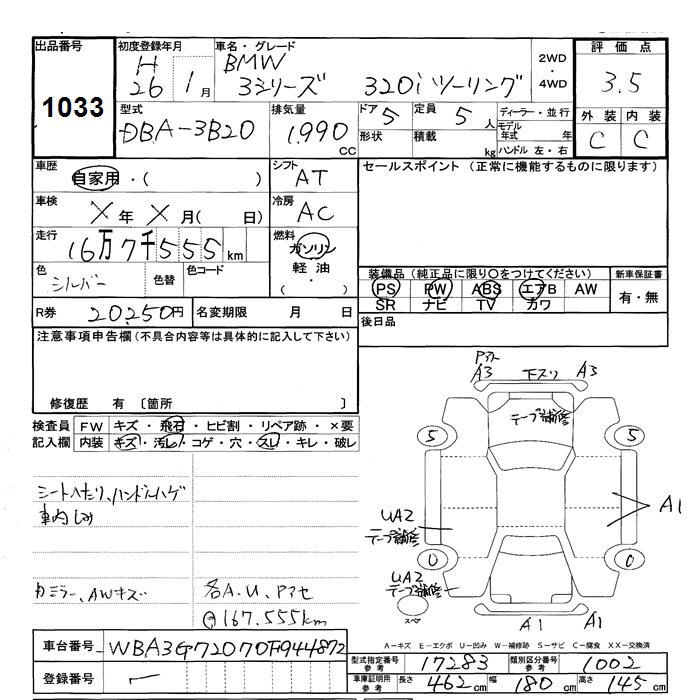 出品番号 1033
初度登録年月 H 26年 1月
車名・グレード BMW 3シリーズ 320i ツーリング
2WD・4WD
評価点 3.5
型式 DBA-3B20
排気量 1,990 CC
ドア 5
定員 5人
形状
積載 kg
ディーラー・並行
モデル年式 年
ハンドル 左・右
外装 C
内装 C
車歴 自家用・( )
シフト AT
セールスポイント (正常に機能するものに限ります)
車検 X年 X月( 日)
冷房 AC
走行 16万7千555km
燃料 ガソリン・軽油・( )
色 シルバー
色替
色コード
装備品 (純正品に限り○をつけてください)
新車保証書
PS PW ABS エアB AW
有・無
SR ナビ TV カワ
R券 20,250円
名変期限 月 日
後日品
注意事項申告欄(不具合内容等は具体的に記入して下さい)
修復歴 有 〔箇所 〕
検査員記入欄
FW キズ・飛石・ヒビ割・リペア跡・×要
内装 キズ・汚レ・コゲ・穴・スレ・キレ・破レ
シートヘたり、ハンドルハゲ
車内しみ
カミラー、AWキズ
各A.U、アセ
167,555km
A3 下スリ A3
テープ補修
5 5
A1
UA2
テープ補修
0 0
UA2
テープ補修
スペア
A1 A1
車台番号 WBA3G72070F944872
登録番号 ー
A-キズ E-エクボ U-凹み W-補修跡 S-サビ C-腐食 XX-交換済
型式指定番号 参考 17283
類別区分番号 参考 1002
車庫証明用 参考 長さ 462cm 幅 180cm 高さ 145cm